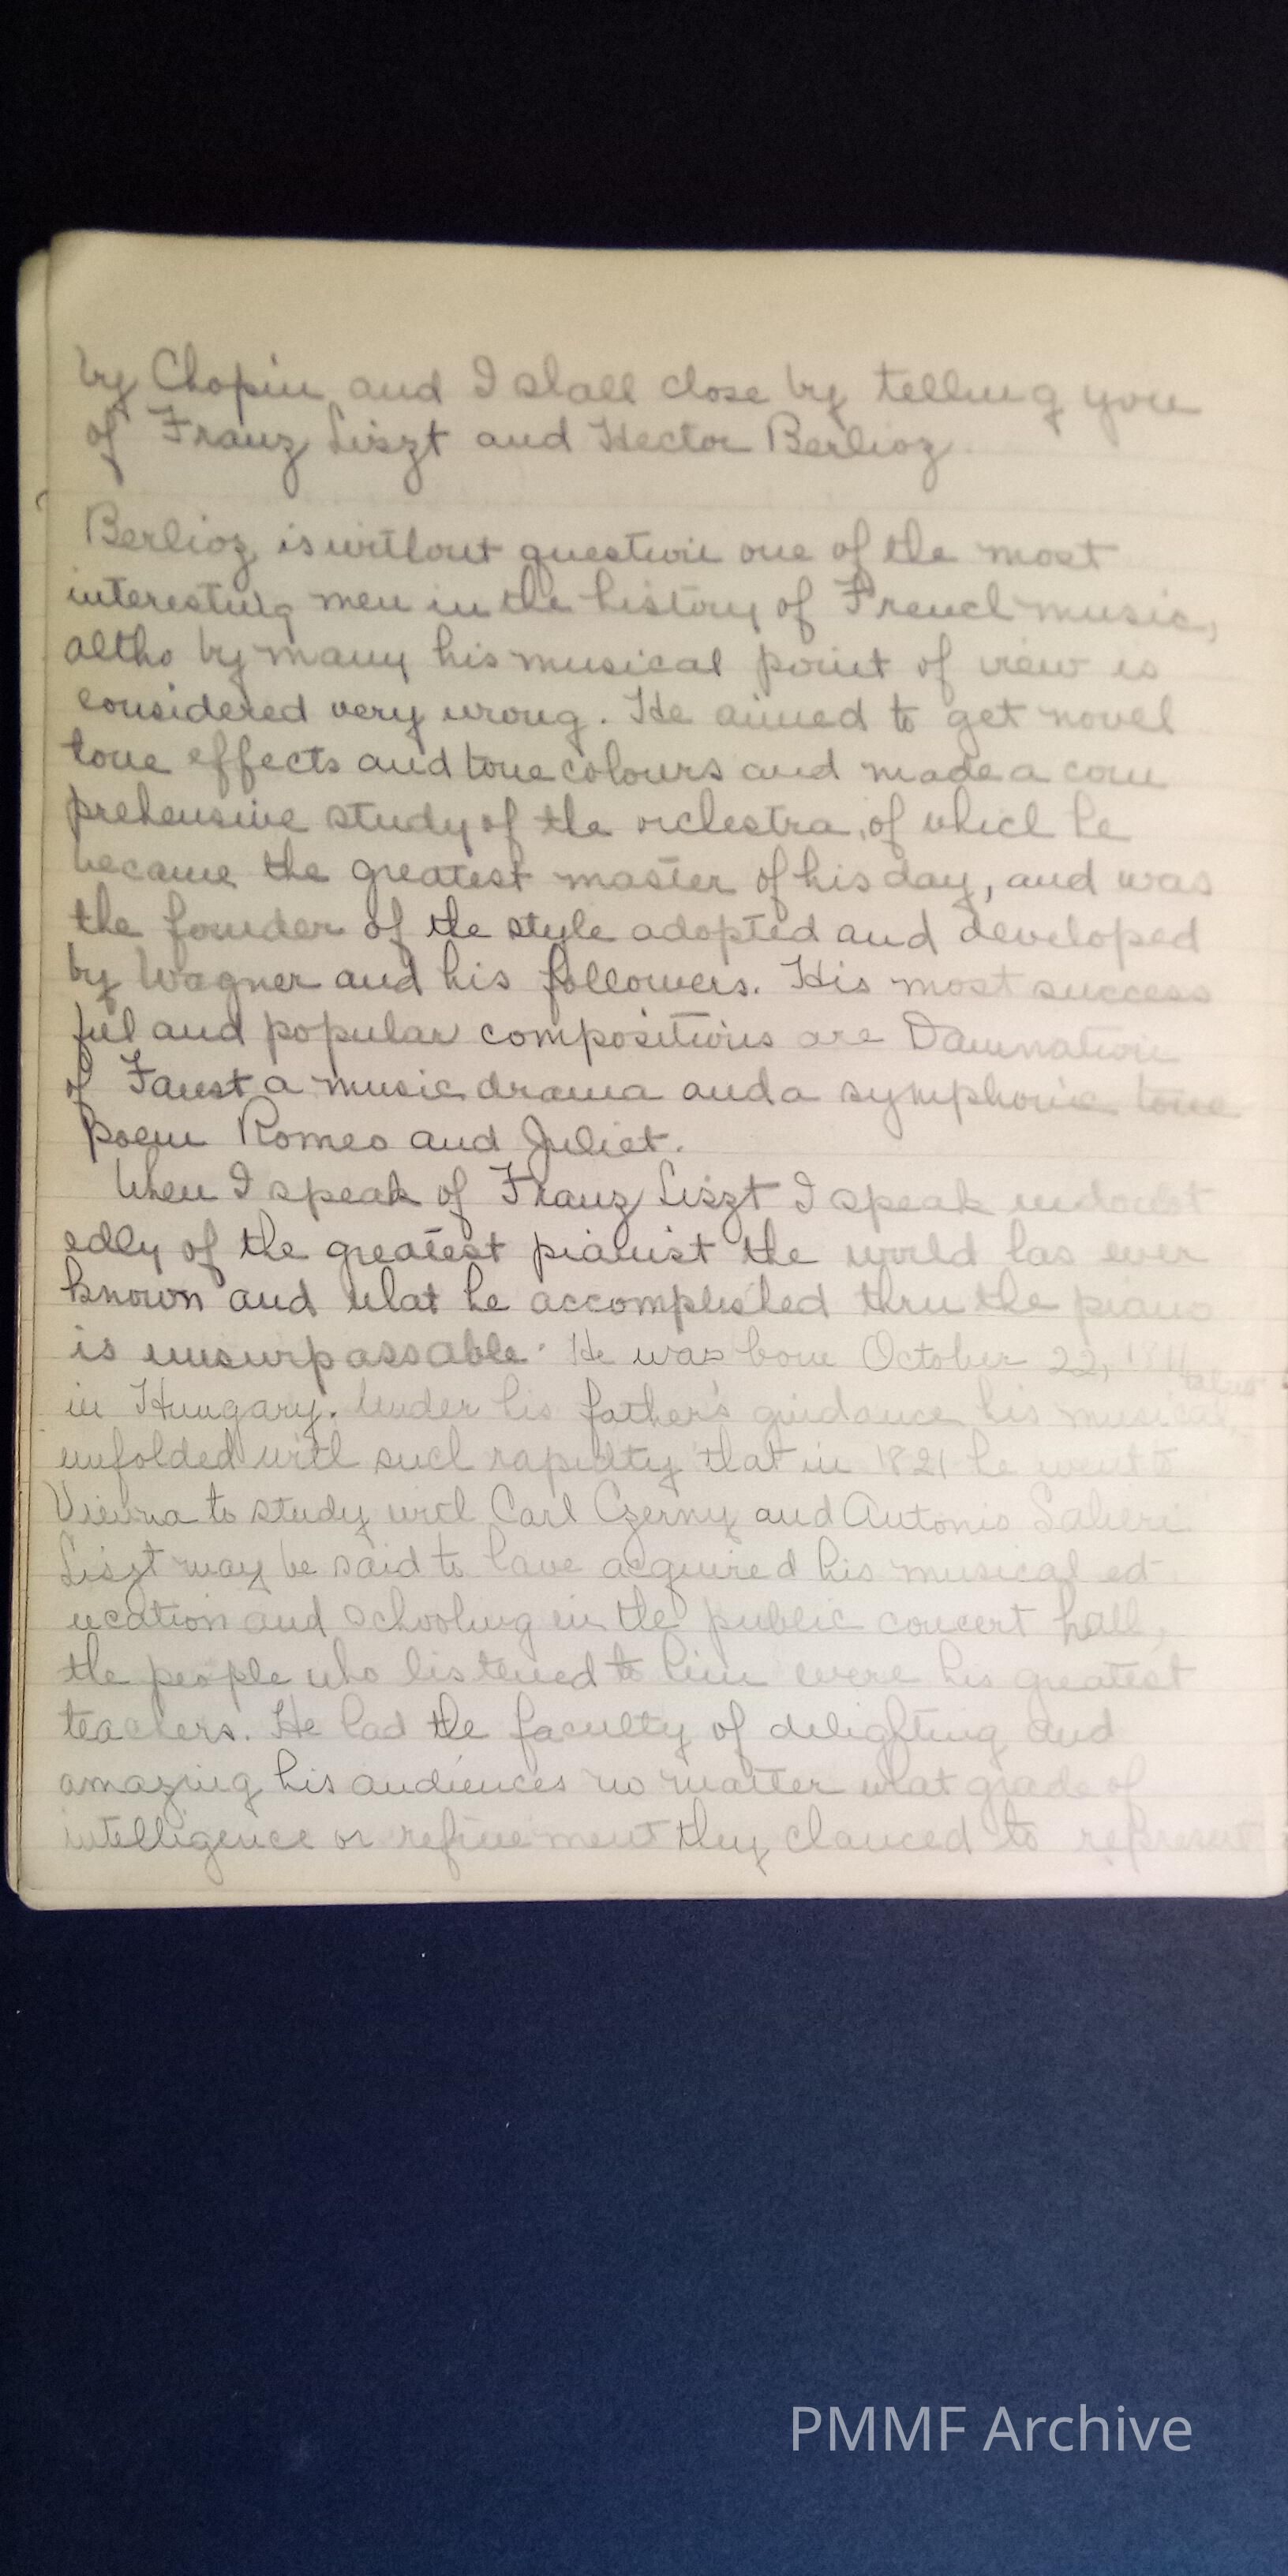 by Chopin and I shall close by telling you
of Franz Liszt and Hector Berlioz.
Berlioz is without question one of the most
interesting men in the history of French music,
altho by many his musical point of view is
considered very wrong. He aimed to get novel
tone effects and tone colours and made a com
prehensive study of the orchestra, of which he
became the greatest master of his day, and was
the founder of the style adopted and developed
by Wagner and his followers. His most success
ful and popular compositions are Damnation
of Faust a music drama and a symphonic tone
poem Romeo and Juliet.
When I speak of Franz Liszt I speak undoubt
edly of the greatest pianist the world has ever
known and what he accomplished thru the piano
is unsurpassable. He was born October 22, 1811
in Hungary. Under his father's guidance his musical
unfolded with such rapidity that in 1821 he went to
Vienna to study with Carl Czerny and Antonio Salieri
Liszt may be said to have acquired his musical ed
ucation and schooling in the public concert hall,
the people who listened to him were his greatest
teachers. He had the faculty of delighting and
amazing his audiences no matter what grade of
intelligence or refinement they chanced to represent
PMMF Archive